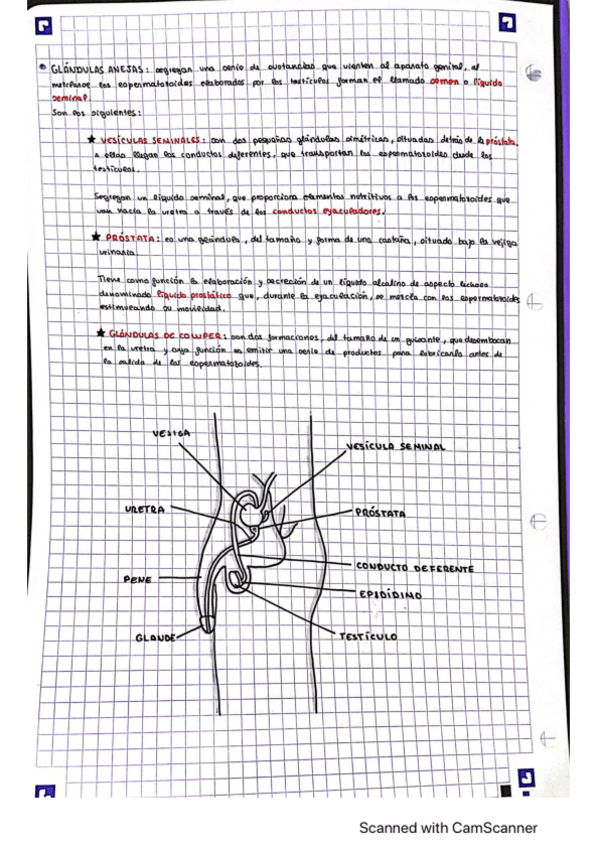 GLÁNDULAS ANEJAS: segregan una serie de sustancias que vierten al aparato genital, al
mezclarse los espermatozoides elaborados por los testículos forman el llamado semen o líquido
seminal.
Son los siguientes:
★ VESÍCULAS SEMINALES: son dos pequeñas glándulas simétricas, situadas detrás de la próstata,
a ellas llegan los conductos deferentes, que transportan los espermatozoides desde los
testículos.
Segregan un líquido seminal, que proporciona elementos nutritivos a los espermatozoides que
van hacia la uretra a través de los conductos eyaculadores.
★ PRÓSTATA: es una glándula, del tamaño y forma de una castaña, situado bajo la vejiga
urinaria.
Tiene como función la elaboración y secreción de un líquido alcalino de aspecto lechoso
denominado líquido prostático que, durante la eyaculación, se mezcla con los espermatozoides
estimulando su movilidad.
★ GLÁNDULAS DE COWPER: son dos formaciones, del tamaño de un guisante, que desembocan
en la uretra y cuya función es emitir una serie de productos para lubricarla antes de
la salida de los espermatozoides.
VEJIGA
VESÍCULA SEMINAL
URETRA
PRÓSTATA
CONDUCTO DEFERENTE
PENE
EPIDÍDIMO
GLANDE
TESTÍCULO
Scanned with CamScanner